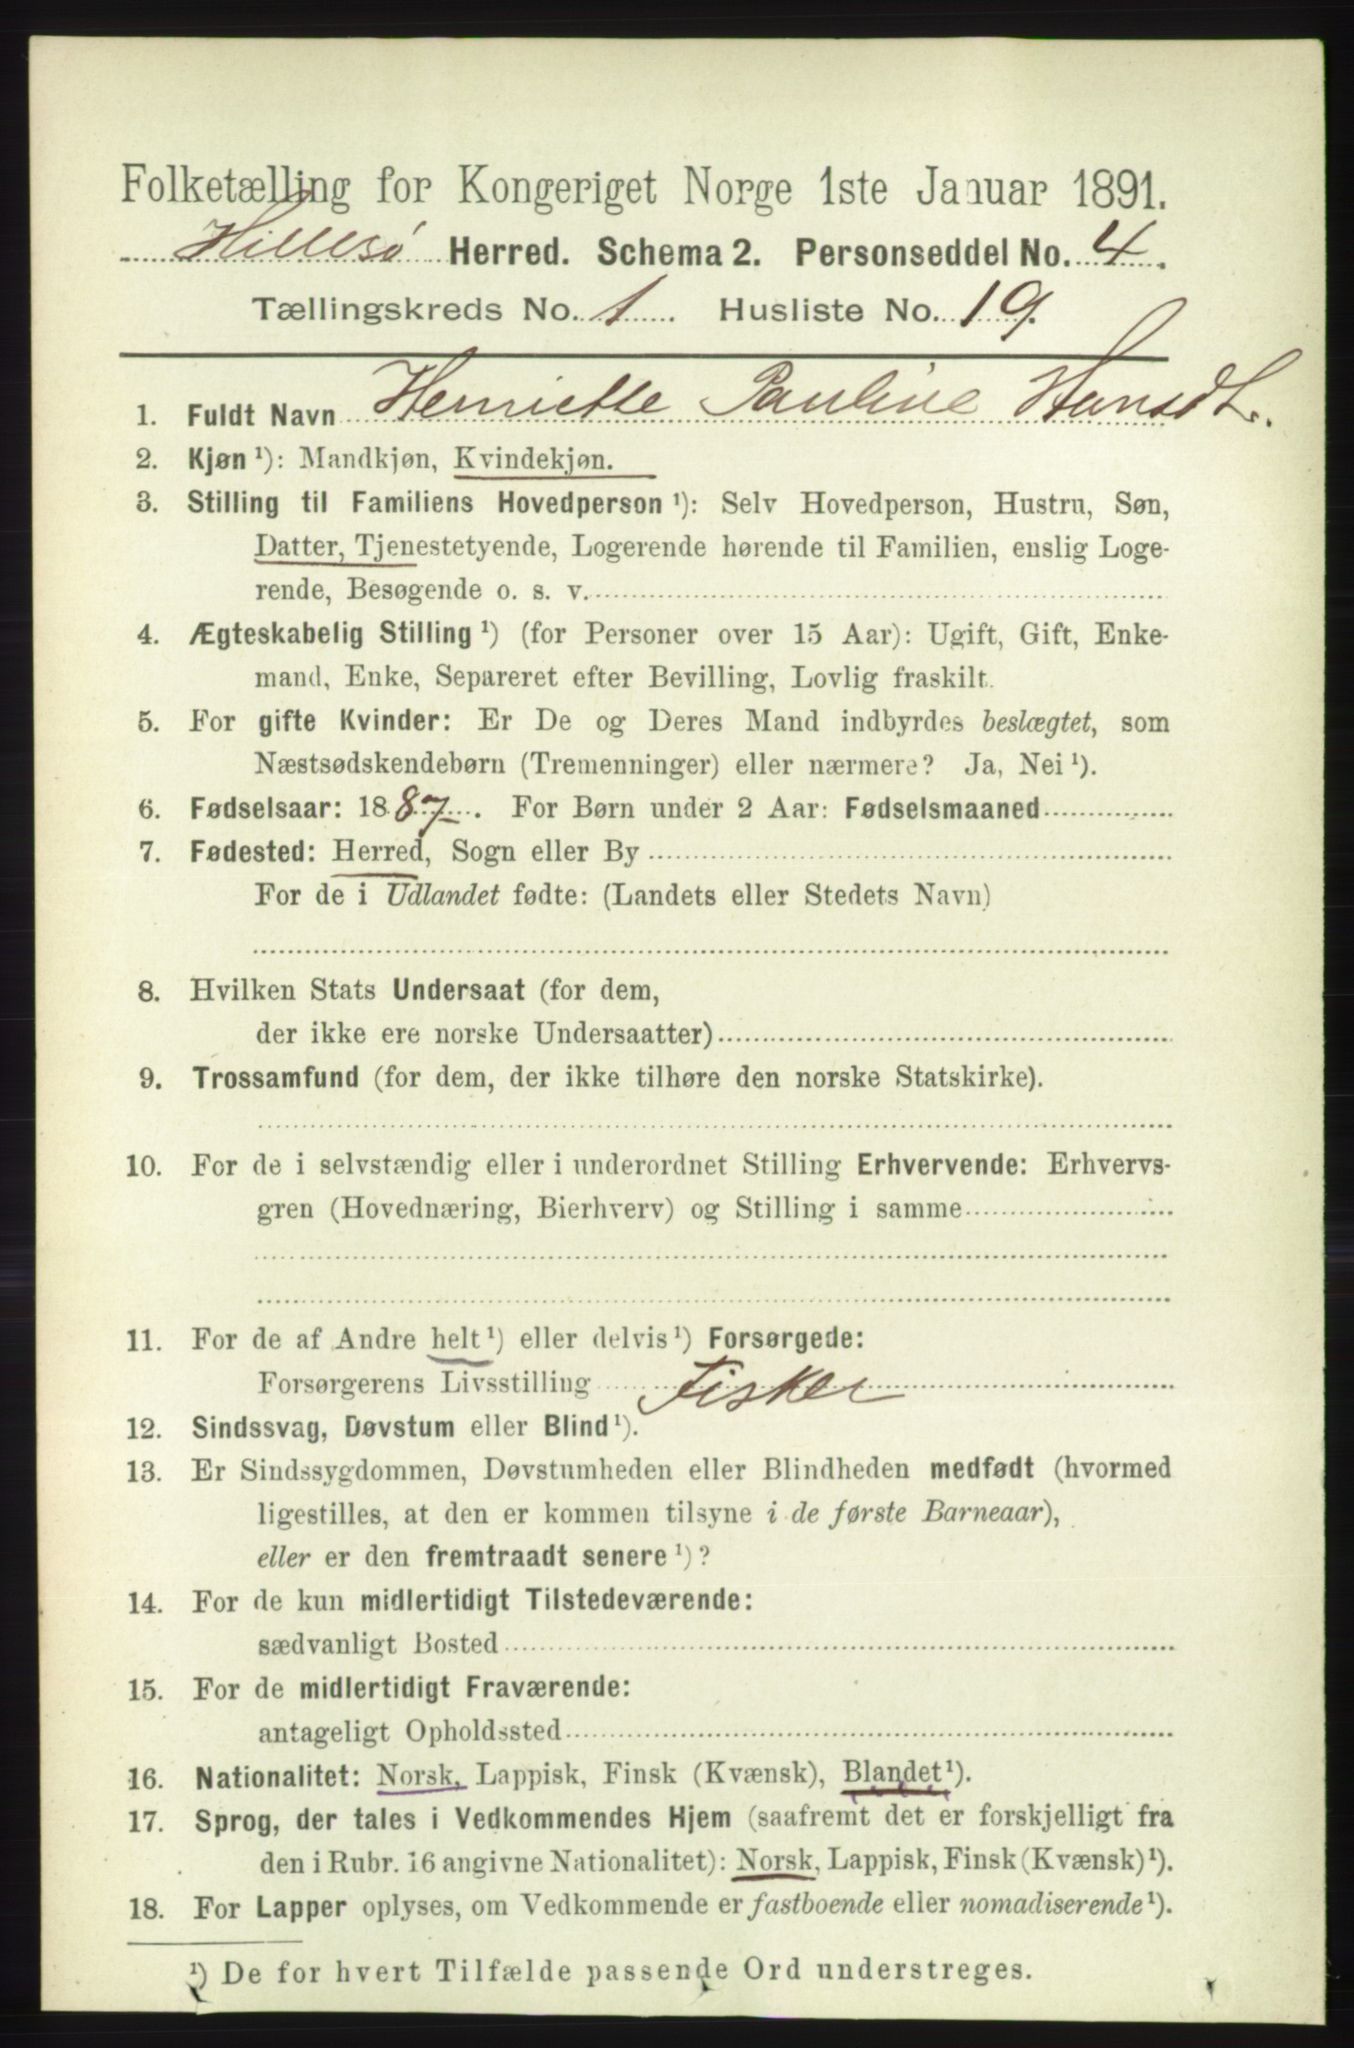 Folketælling for Kongeriget Norge 1ste Januar 1891.
Hillesø Herred. Schema 2. Personseddel No. 4.
Tællingskreds No. 1. Husliste No. 19.
1. Fuldt Navn Henriette Pauline Hansdt.
2. Kjøn ¹): Mandkjøn, Kvindekjøn.
3. Stilling til Familiens Hovedperson ¹): Selv Hovedperson, Hustru, Søn,
Datter, Tjenestetyende, Logerende hørende til Familien, enslig Loge-
rende, Besøgende o. s. v.
4. Ægteskabelig Stilling ¹) (for Personer over 15 Aar): Ugift, Gift, Enke-
mand, Enke, Separeret efter Bevilling, Lovlig fraskilt.
5. For gifte Kvinder: Er De og Deres Mand indbyrdes beslægtet, som
Næstsødskendebørn (Tremenninger) eller nærmere? Ja, Nei ¹).
6. Fødselsaar: 1887. For Børn under 2 Aar: Fødselsmaaned
7. Fødested: Herred, Sogn eller By
For de i Udlandet fødte: (Landets eller Stedets Navn)
8. Hvilken Stats Undersaat (for dem,
der ikke ere norske Undersaatter)
9. Trossamfund (for dem, der ikke tilhøre den norske Statskirke).
10. For de i selvstændig eller i underordnet Stilling Erhvervende: Erhvervs-
gren (Hovednæring, Bierhverv) og Stilling i samme
11. For de af Andre helt ¹) eller delvis ¹) Forsørgede:
Forsørgerens Livsstilling Fisker
12. Sindssvag, Døvstum eller Blind ¹).
13. Er Sindssygdommen, Døvstumheden eller Blindheden medfødt (hvormed
ligestilles, at den er kommen tilsyne i de første Barneaar),
eller er den fremtraadt senere ¹)?
14. For de kun midlertidigt Tilstedeværende:
sædvanligt Bosted
15. For de midlertidigt Fraværende:
antageligt Opholdssted
16. Nationalitet: Norsk, Lappisk, Finsk (Kvænsk), Blandet ¹).
17. Sprog, der tales i Vedkommendes Hjem (saafremt det er forskjelligt fra
den i Rubr. 16 angivne Nationalitet): Norsk, Lappisk, Finsk (Kvænsk) ¹).
18. For Lapper oplyses, om Vedkommende er fastboende eller nomadiserende ¹).
¹) De for hvert Tilfælde passende Ord understreges.